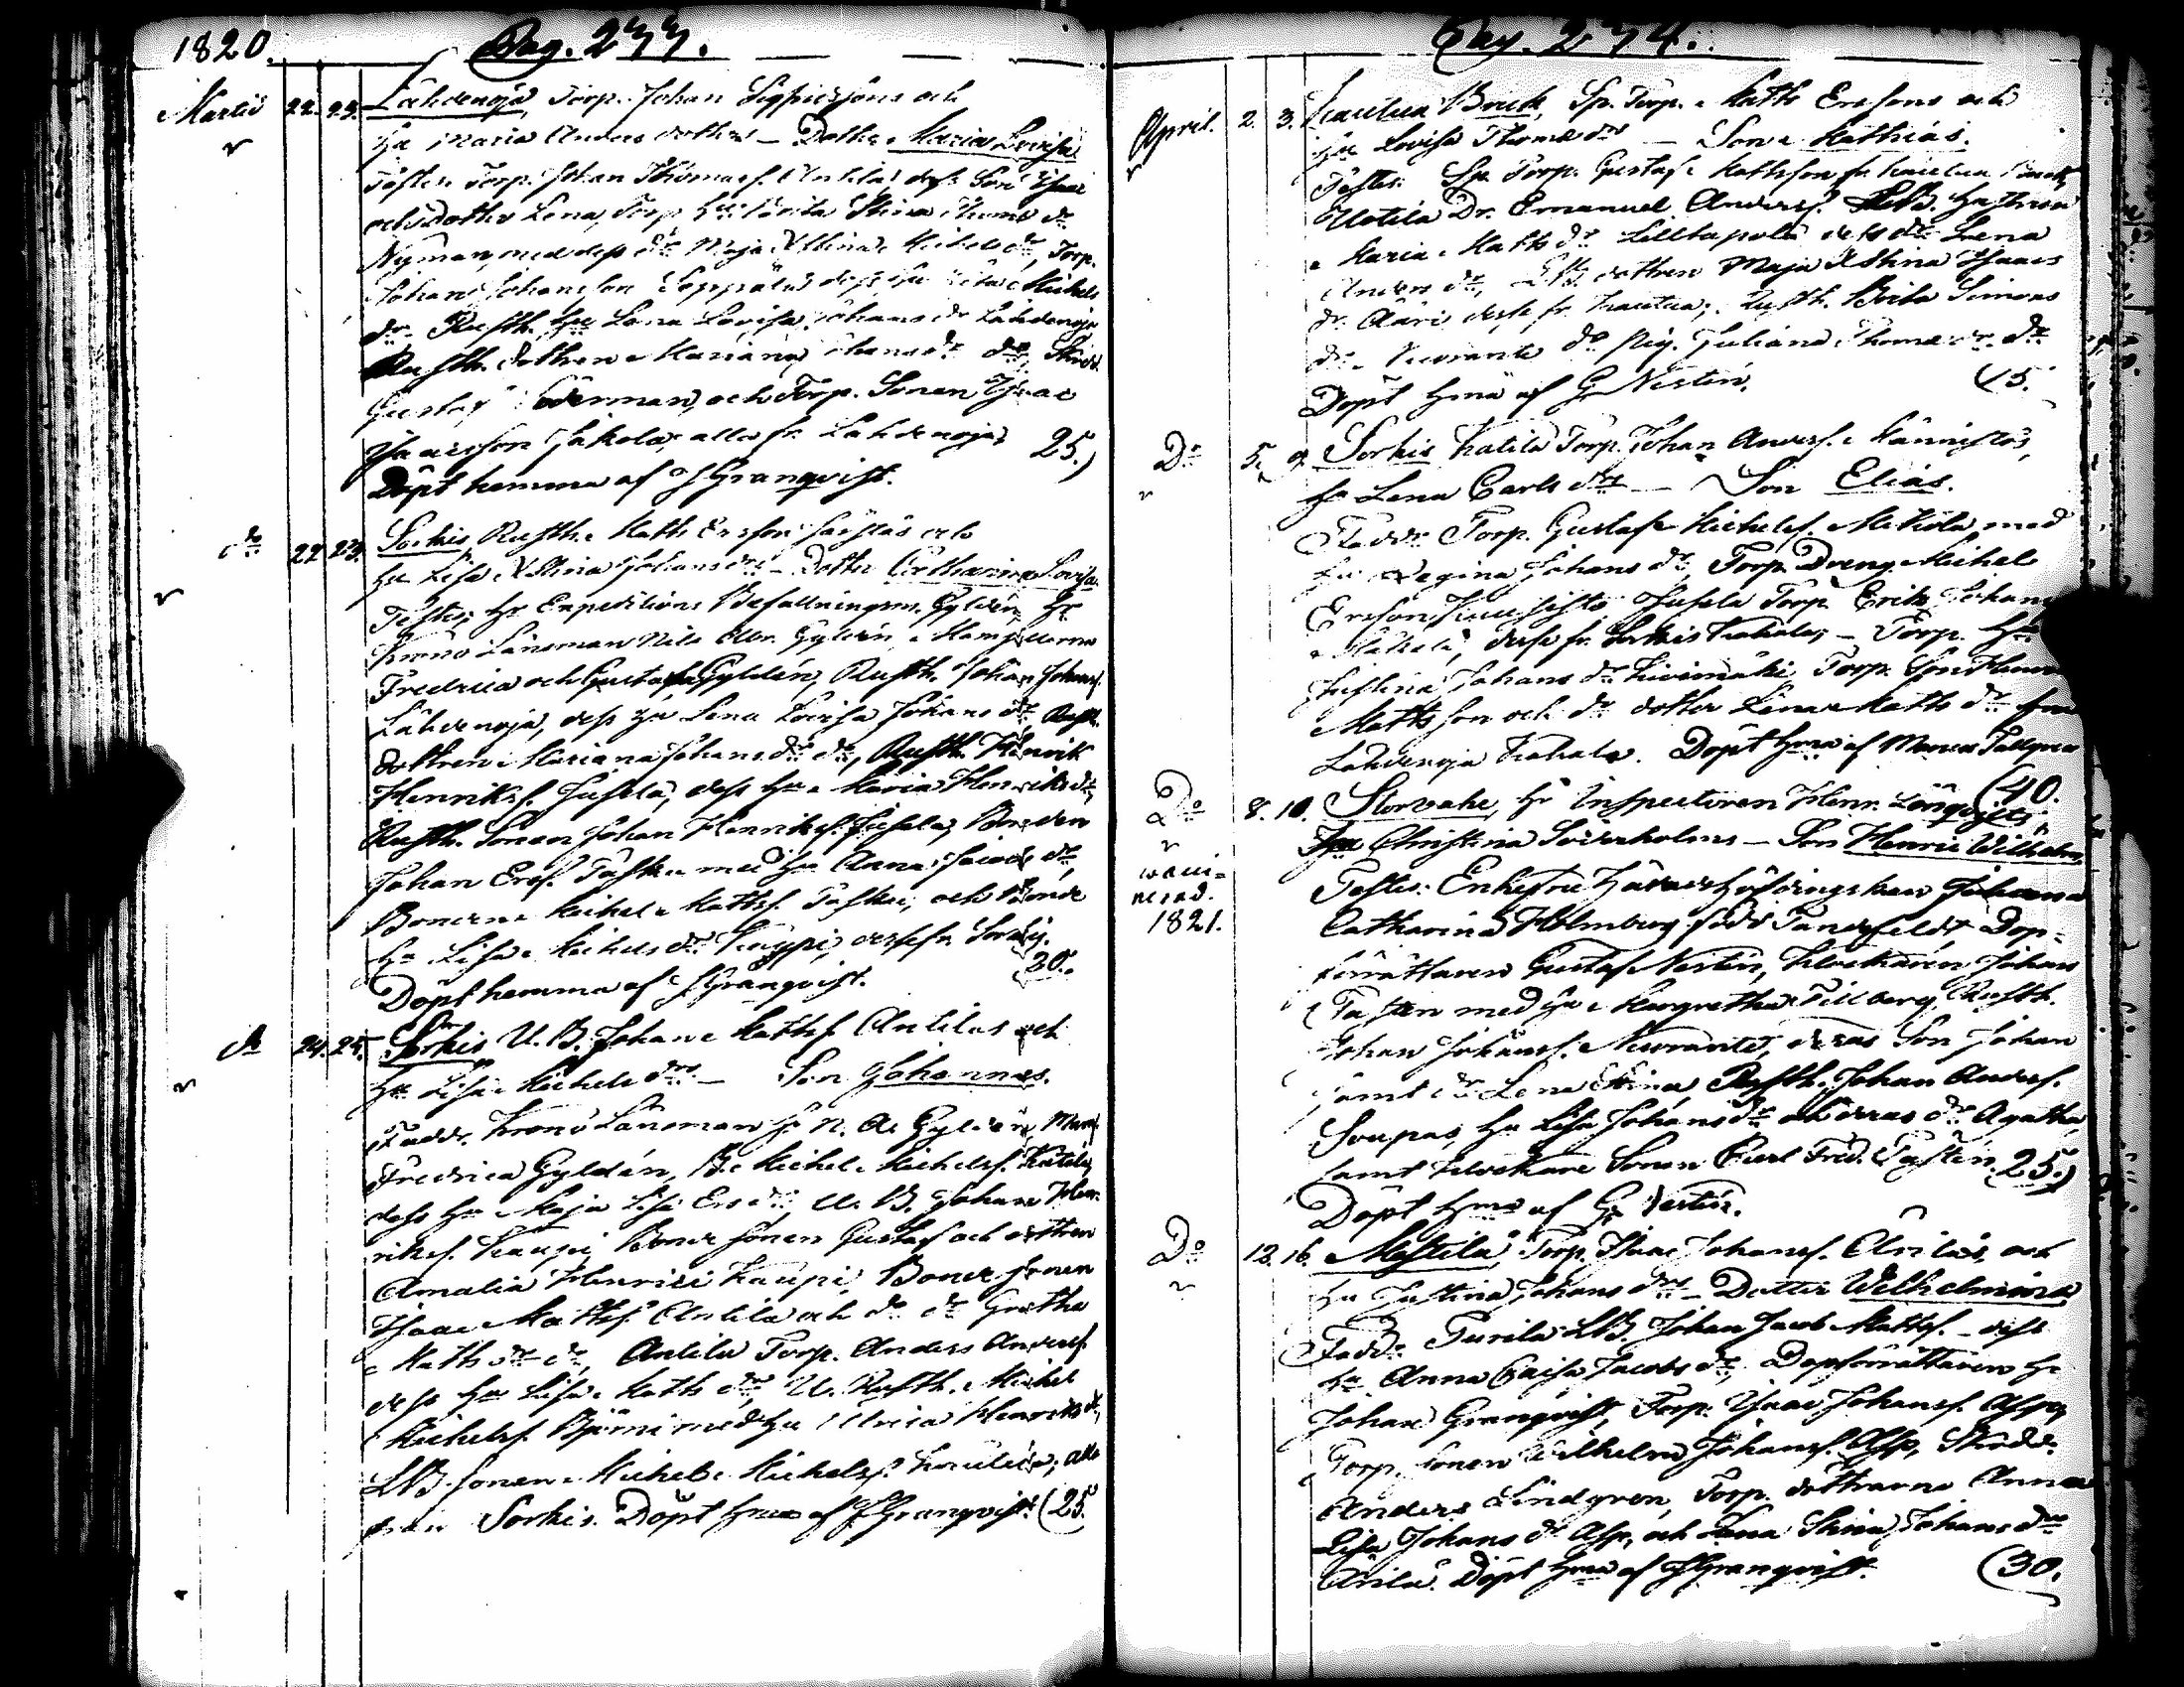 1820. Pag. 277.
Martii 22. 23. Lahdenoja, Torp. Johan Sigfridsons och
Hu Maria Anders dotters – Dotter Maria Lovisa
Testes Torp. Johan Thomasf. Antila, dess Son Isaac
och dotter Lena, Torp. Hu Brita Stina Thoms dr
Nyman, med dess dr Maja Stina Michels dr, Torp.
Johan Johansson Seppälä dess Hu Michels
dr. Rusth. Hu Lena Lovisa Johans dr Lahdenoja
Rusth. dottren Mariana Johans dr do, Skrädd.
Gustaf Söderman, och Torp. Sonen Isaac
Isacsson Jakola, alla fr. Lahdenoja 25.)
Döpt hemma af J Granqvist.
do 22. 23. Sorkis Rusth. Matts Ersson och
Hu Lisa Stina Johans drs – Dotter Catharina Lovisa
Testes, Hr Expeditions Befallningsm. Gyldén, Hr
Krono Länsman Nils Abr. Gyldén, Mamsellerna
Fredrica och Gustafva Gyldén, Rusth. Johan Johansf.
Lahdenoja, dess Hu Lena Lovisa Johans dr Rusth.
dottren Mariana Johans dr do, Rusth. Henrik
Henriksf. Jusela, dess Hu Maria Henriks dr,
Rusth. Sonen Johan Henriksf. Jusela, Bonden
Johan Ersf. Paska med Hu Anna dr,
Bonden Michel Mattsf. Paska, och Bonde
Hu Lisa Michels dr Kaupi, dess fr Sorkis.
Döpt hemma af J Granqvist. (20.
do 24. 25. Sorkis U. B. Johan Mattsf Antilas och
Hu Lisa Michels drs – Son Johannes.
Fadd. Krono Länsman Hr N. A. Gyldén, Mams.
Fredrica Gyldén, B. Michel Michelsf. Katila,
dess Hu Maja Lisa Ers dr, U. B. Johan Hen-
riksf. Kaupi, Bonde sonen Gustaf och dottren
Amalia Henrici Kaupi, Bonde sonen
Isaac Mattsf. Antila och do dr Gretha
Matts dr do, Antila Torp. Anders Andersf.
dess Hu Lisa Matts dr, U. Rusth. Michel
Michelsf. Björni med Hu Ulrica Henriks dr,
LB. sonen Michel Michelsf. alla
från Sorkis. Döpt hema af J Granqvist. (25.
Pag. 274.
April. 2. 3. Kautua Bruk, Sp. Torp. Matts Ersons och
Hu Lovisa Thomæ drs – Son Mathias.
Testes. Sp. Torp. Gustaf Mattsson fr Kautua Bruk,
Uotila Dr. Emanuel Andersf.
Maria Matts dr Lena
Anders dr, LB. dottren Maja Stina Isaacs
dr Kautua, Rusth. Brita Simons
dr. Neuvante do Pig. Juliana Thomæ dr do
Döpt hma af G. Nestén. (15.
Do 5. 9. Sorkis Katila Torp. Johan Andersf. Männistös,
Hu Lena Carls drs – Son Elias.
Faddr Torp. Gustaf Michelsf. Mikola med
Hu Regina Johans dr, Torp. Dreng Michel
Erson Jusela Torp. Erik Johans
Mäkelä, desse fr. Sorkis – Torp. Hu
Justina Johans dr Kivimäki, Torp. Son Henr.
Mattsson och do dotter Lena Matts dr från
Lahdenoja Döpt hma af Tallgren
(40.
Do 8. 10. Storvahe, Hr Inspectoren Henr. Lönqvists,
Fru Christina Söderholms – Son Henric Wilhelm
vacci-
nerad.
1821.
Testes: Enkefru Häradshöfdingskan Johanna
Catharina Holmberg född Tandefeldt, Dop-
förrättaren Gustaf Nestén, Klockaren Johan
Tastén med Hu Margretha Tillberg, Rusth.
Johan Johansf. Neuvante, deras Son Johan
samt dr Lena Stina, Rusth. Johan Andersf.
Soupas, Hu Lisa Johans dr och deras dr Agatha,
samt Klockare Sonen Carl Fred. Tastén. 25.)
Döpt hma af G. Nestén.
Do 12. 16. Mestilä, Torp. Isaac Johansf. Arilas, och
Hu Justina Johans drs – Dotter Wilhelmina
Faddr Turila LB. Johan Jacob Mattsf. – dess
Hu Anna Caisa Jacobs dr, Dopförrättaren Hr
Johan Granqvist, Torp. Isaac Johansf. Asp,
Torp. Sonen Wilhelm Johansf. Asp, Skrädd.
Anders Lindgren, Torp. döttrarne Anna
Lisa Johans dr Asp, och Lena Stina Johans dr
Arila. Döpt hma af J Granqvist. (30.